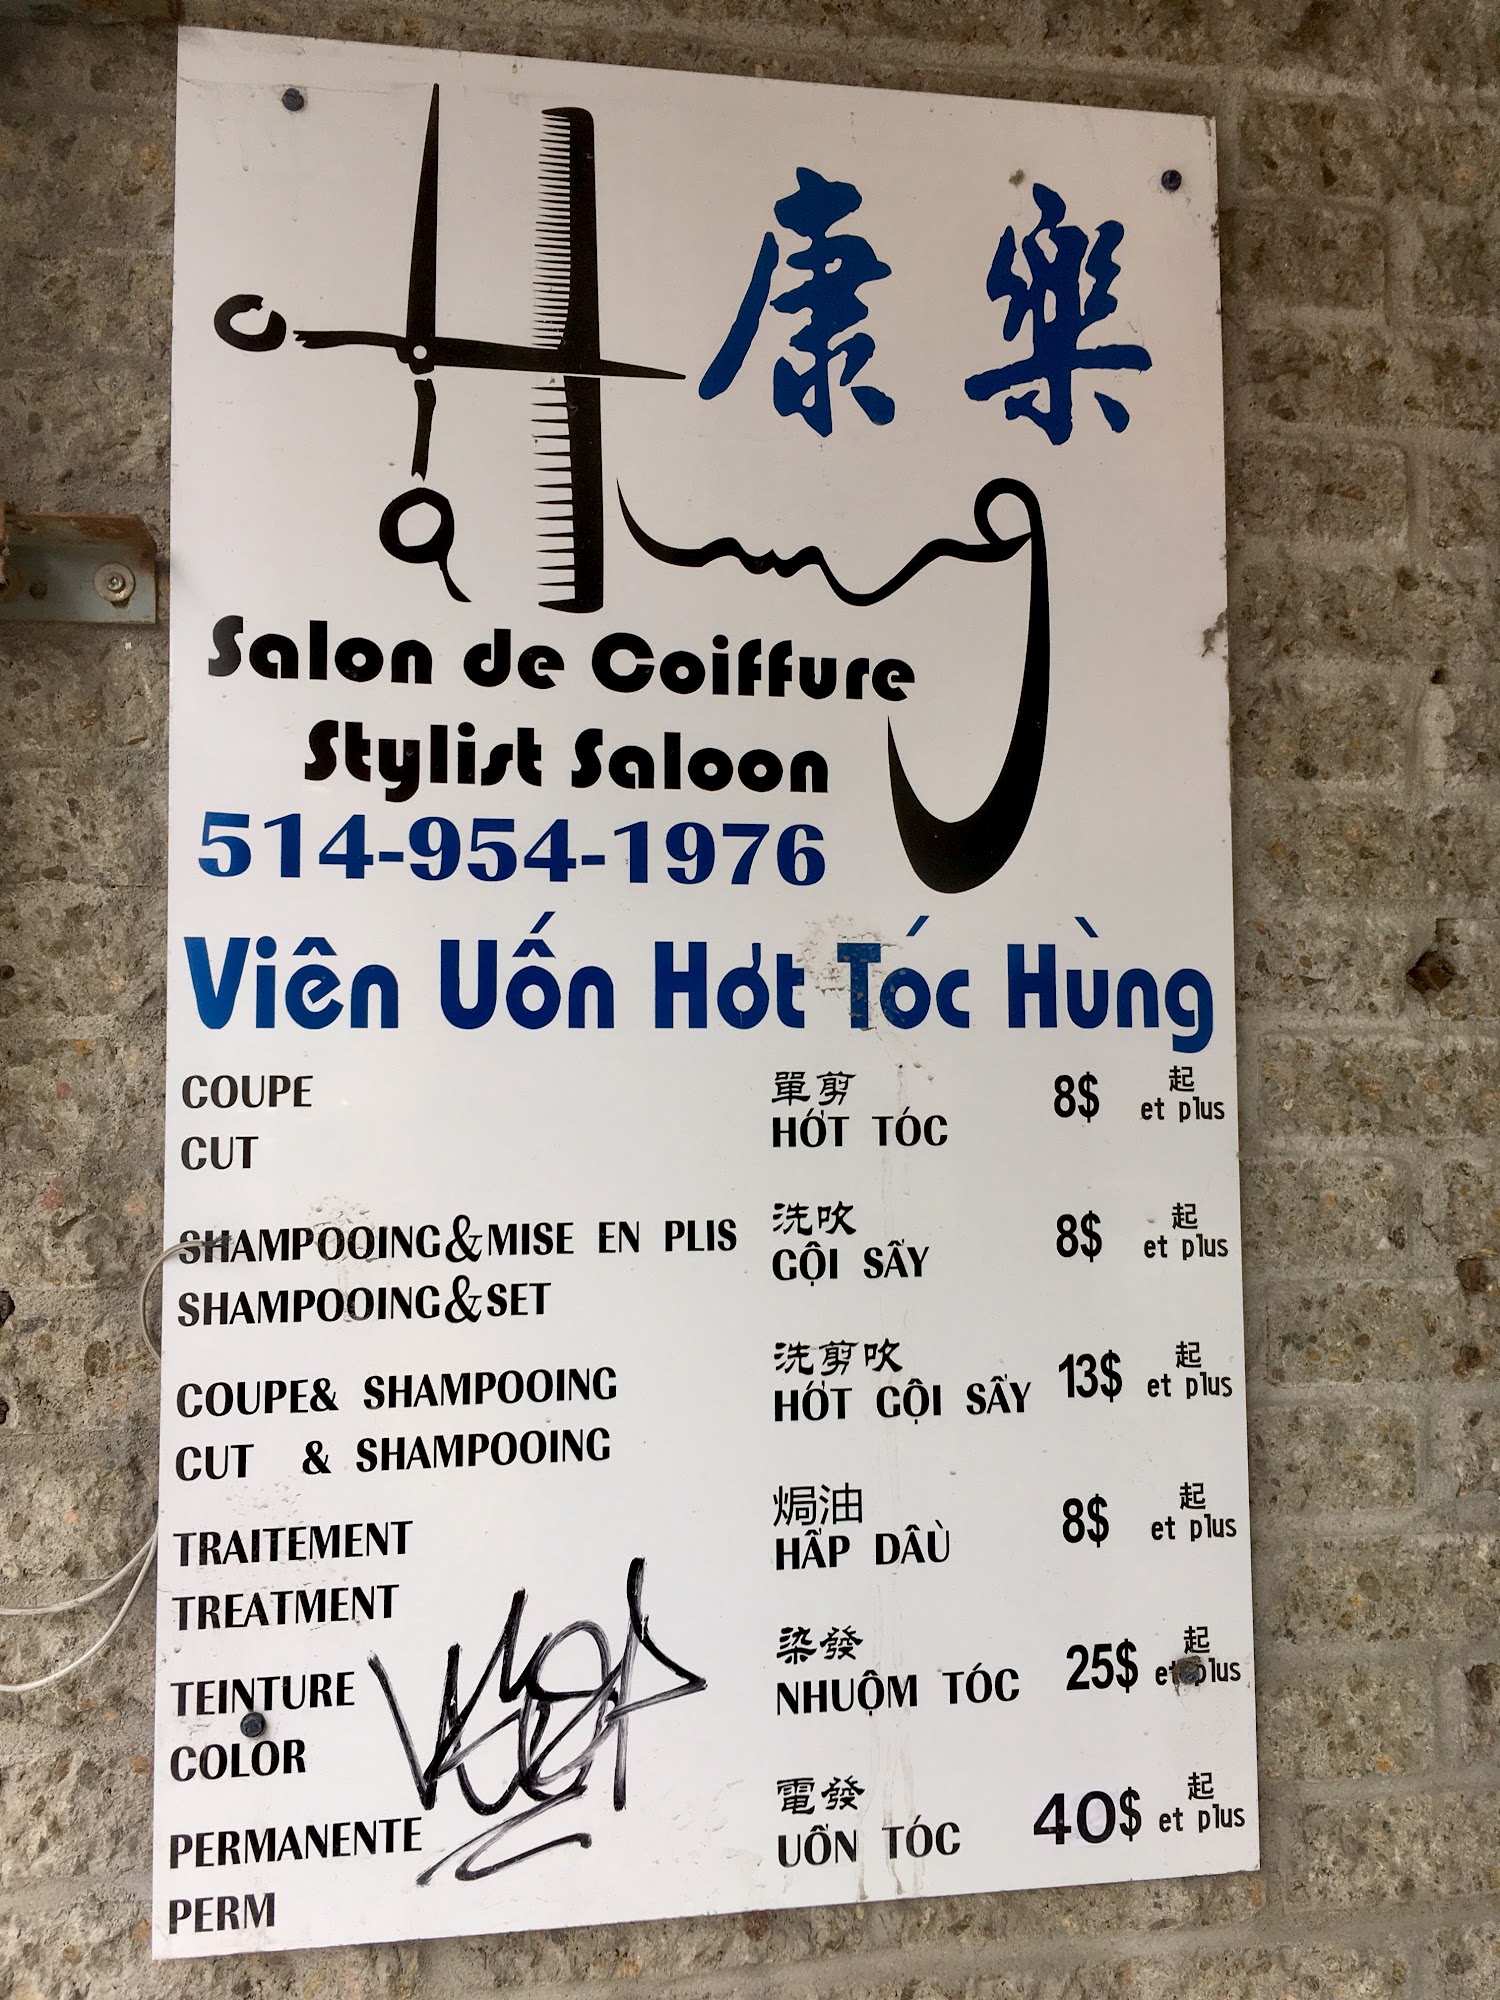 康樂
Hung
Salon de Coiffure
Stylist Saloon
514-954-1976
Viên Uốn Hớt Tóc Hùng
COUPE
CUT
單剪
HỚT TÓC
8$
起
et plus
SHAMPOOING&MISE EN PLIS
SHAMPOOING&SET
洗吹
GỘI SẤY
8$
起
et plus
COUPE& SHAMPOOING
CUT & SHAMPOOING
洗剪吹
HỚT GỘI SẤY
13$
起
et plus
TRAITEMENT
TREATMENT
焗油
HẤP DÂÙ
8$
起
et plus
TEINTURE
COLOR
染發
NHUỘM TÓC
25$
起
et plus
PERMANENTE
PERM
電發
UỐN TÓC
40$
起
et plus